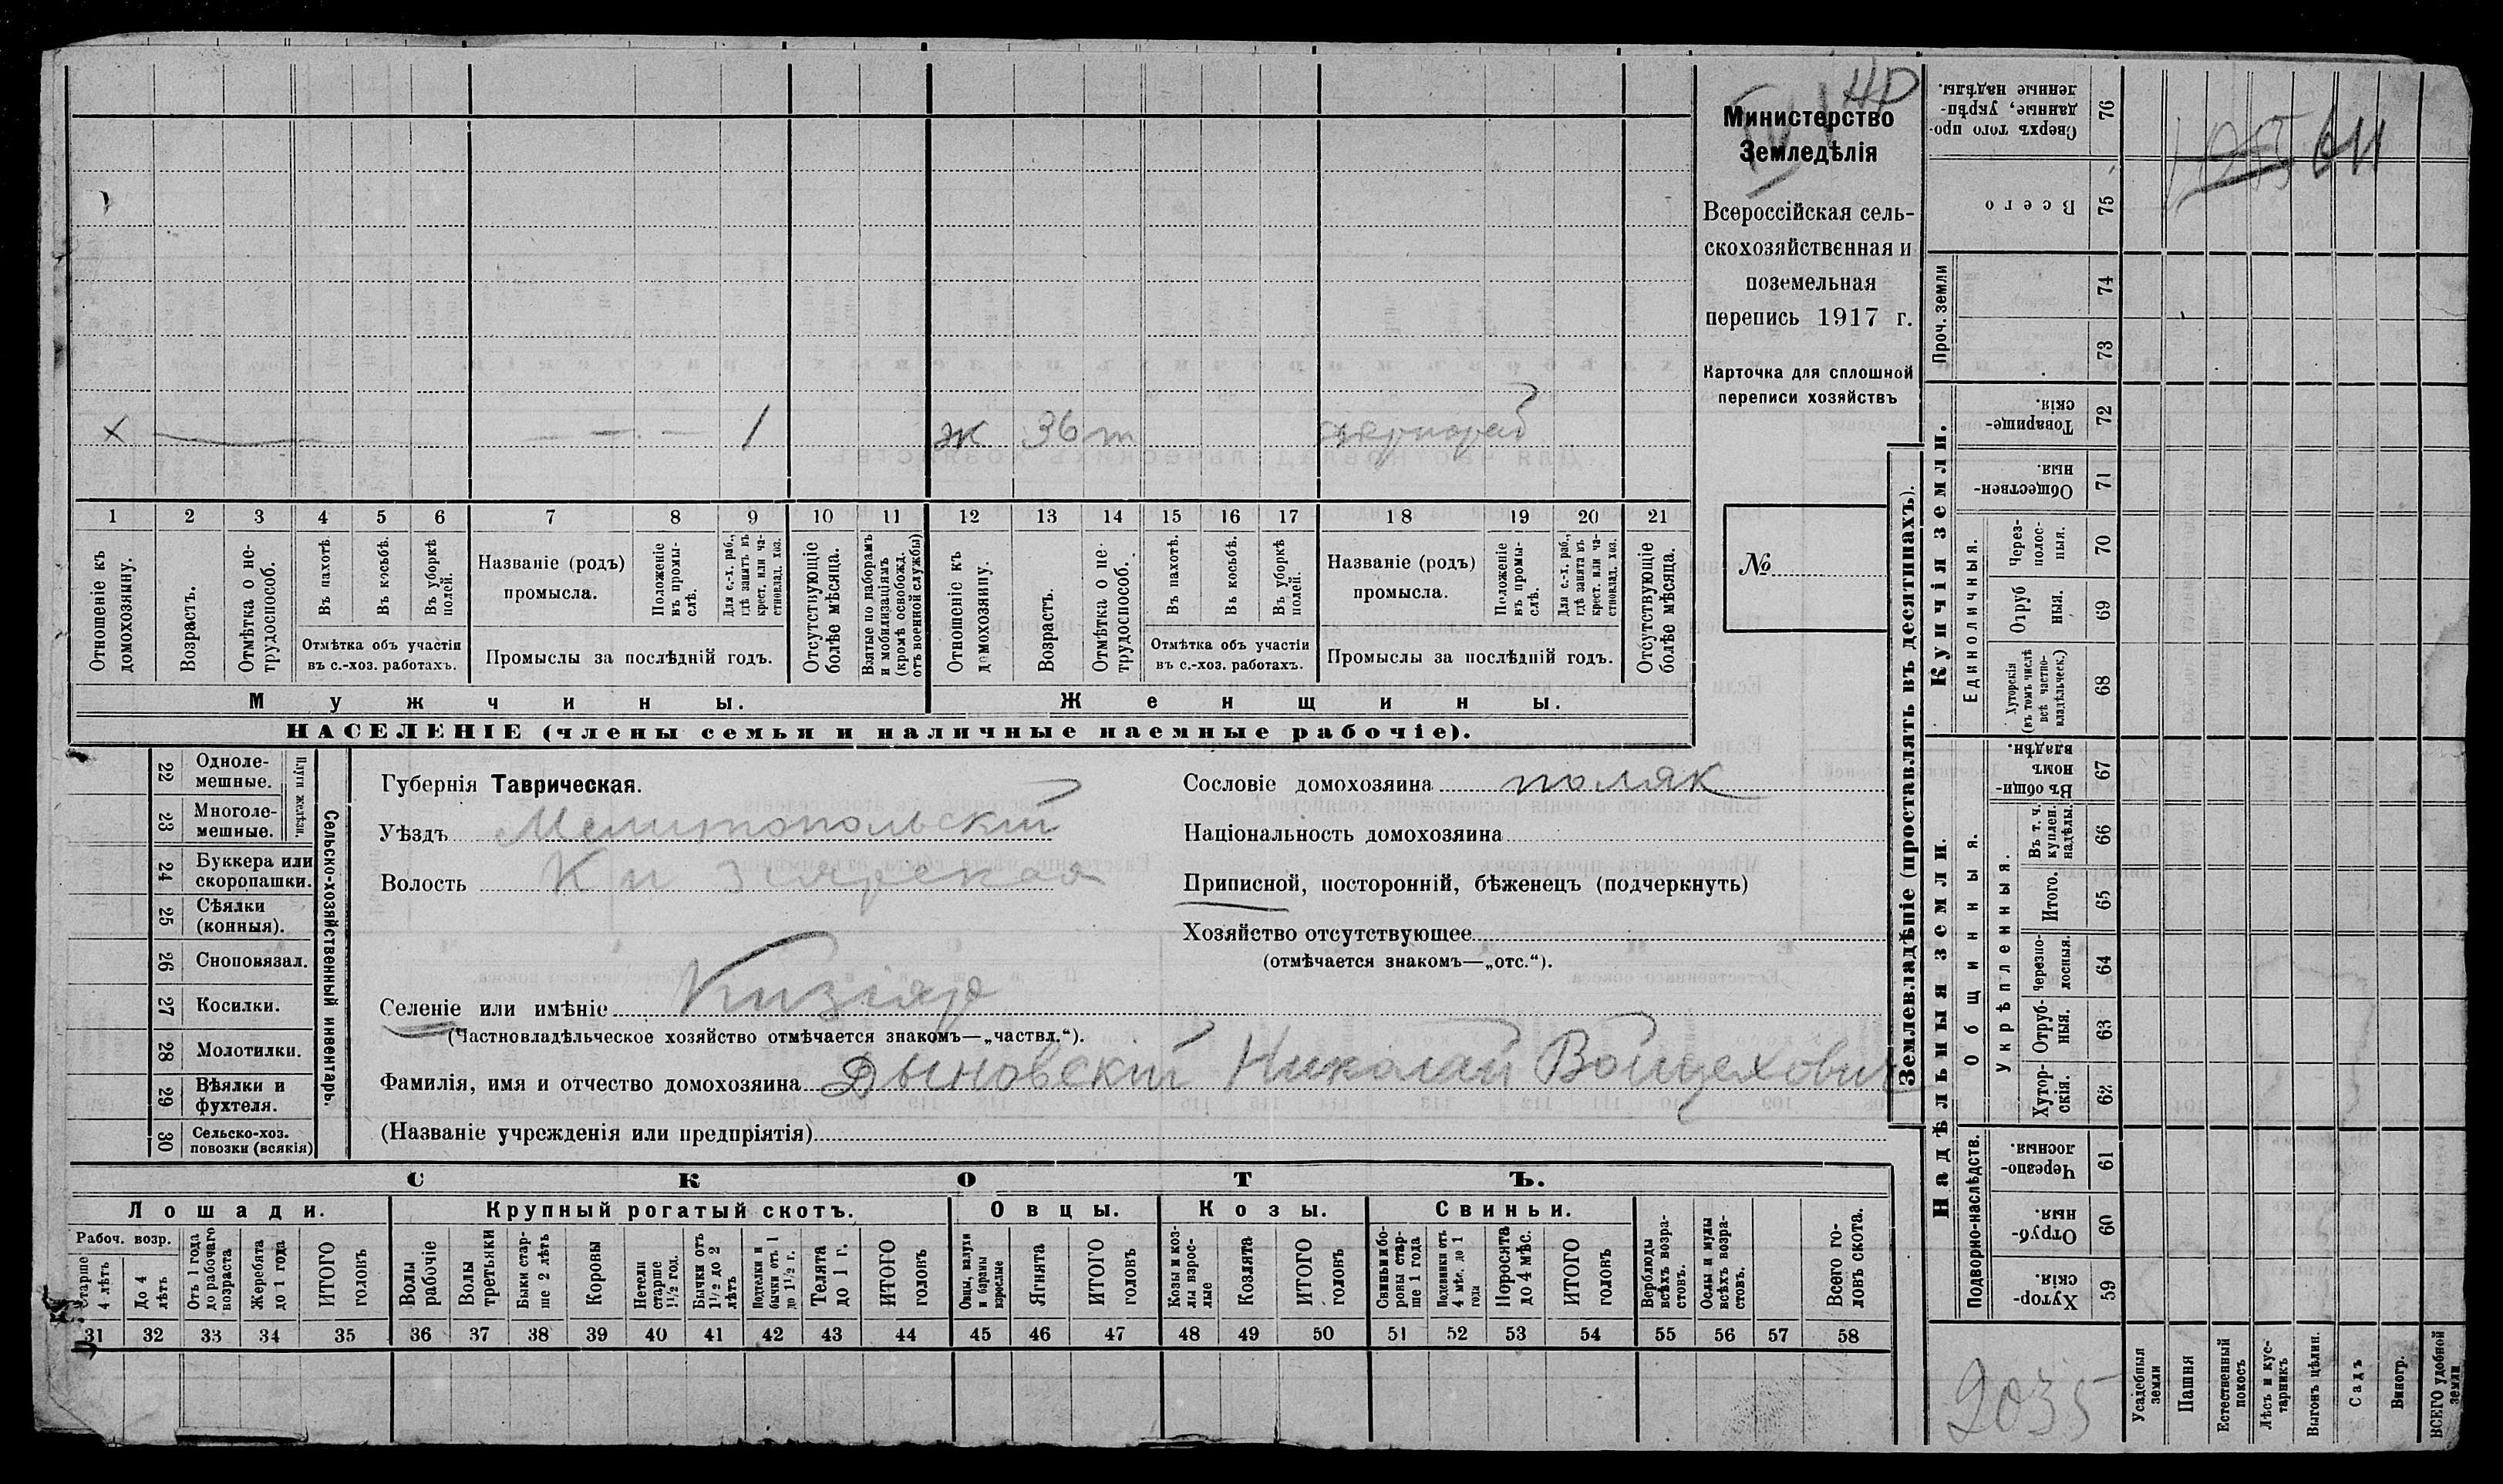 Министерство
Земледѣлія
Всероссійская сель-
скохозяйственная и
поземельная
перепись 1917 г.
Карточка для сплошной
переписи хозяйствъ
№
1055 611
х 1 ж 36
1 2 3 4 5 6 7 8 9 10 11 12 13 14 15 16 17 18 19 20 21
Отношеніе къ домохозяину.
Возрастъ.
Отмѣтка о не-трудоспособ.
Въ пахотѣ.
Въ косьбѣ.
Въ уборкѣ полей.
Отмѣтка объ участіи
въ с.-хоз. работахъ.
Названіе (родъ)
промысла.
Положеніе въ промы-слѣ.
Для с.-х. раб., гдѣ занятъ въ крест. или ча-стновлад. хоз.
Промыслы за послѣдній годъ.
Отсутствующіе болѣе мѣсяца.
Взятые по наборамъ и мобилизаціямъ (кромѣ освобожд. отъ военной службы)
Отношеніе къ домохозяину.
Возрастъ.
Отмѣтка о не-трудоспособ.
Въ пахотѣ.
Въ косьбѣ.
Въ уборкѣ полей.
Отмѣтка объ участіи
въ с.-хоз. работахъ.
Названіе (родъ)
промысла.
Положеніе въ промы-слѣ.
Для с.-х. раб., гдѣ занята въ крест. или ча-стновлад. хоз.
Промыслы за послѣдній годъ.
Отсутствующіе болѣе мѣсяца.
Мужчины. Женщины.
НАСЕЛЕНІЕ (члены семьи и наличные наемные рабочіе).
22 Одноле-мешные.
23 Многоле-мешные.
Плуги желѣзн.
24 Буккера или скоропашки.
25 Сѣялки (конныя).
26 Сноповязал.
27 Косилки.
28 Молотилки.
29 Вѣялки и фухтеля.
30 Сельско-хоз. повозки (всякія)
Сельско-хозяйственный инвентарь.
Губернія Таврическая.
Уѣздъ Мелитопольскій
Волость Кизіярская
Селеніе или имѣніе Кизіяр
(Частновладѣльческое хозяйство отмѣчается знакомъ—„частвл.“).
Фамилія, имя и отчество домохозяина Дыновскій Николай Войцехович
(Названіе учрежденія или предпріятія)
Сословіе домохозяина поляк
Національность домохозяина
Приписной, посторонній, бѣженецъ (подчеркнуть)
Хозяйство отсутствующее
(отмѣчается знакомъ—„отс.“).
СКОТЪ.
Лошади. Крупный рогатый скотъ. Овцы. Козы. Свиньи.
Рабоч. возр.
Старше 4 лѣтъ
До 4 лѣтъ
Отъ 1 года до рабочаго возраста
Жеребята до 1 года
ИТОГО головъ
Волы рабочіе
Волы третьяки
Быки стар-ше 2 лѣтъ
Коровы
Нетели старше 1½ год.
Бычки отъ 1½ до 2 лѣтъ
Подтелки и бычки отъ 1 до 1½ г.
Телята до 1 г.
ИТОГО головъ
Овцы, валухи и бараны взрослые
Ягнята
ИТОГО головъ
Козы и коз-лы взрос-лые
Козлята
ИТОГО головъ
Свиньи и бо-ровы стар-ше 1 года
Подсвинки отъ 4 мѣс. до 1 года
Поросята до 4 мѣс.
ИТОГО головъ
Верблюды всѣхъ возра-стовъ.
Ослы и мулы всѣхъ возра-стовъ.
Всего го-ловъ скота.
31 32 33 34 35 36 37 38 39 40 41 42 43 44 45 46 47 48 49 50 51 52 53 54 55 56 57 58
Землевладѣніе (проставлять въ десятинахъ).
Надѣльныя земли. Купчія земли. Проч. земли
Подворно-наслѣдств.
Общинныя.
Укрѣпленныя.
Единоличныя.
Хутор-скія. 59
Отруб-ныя. 60
Черезпо-лосныя. 61
Хутор-скія. 62
Отруб-ныя. 63
Черезпо-лосныя. 64
Итого. 65
Въ т. ч. куплен. надѣлы. 66
Въ общи-номъ владѣн. 67
Хуторскія (въ томъ числѣ всѣ частно-владѣльческ.) 68
Отруб ныя. 69
Через-полос-ныя. 70
Обществен-ныя. 71
Товарище-скія. 72
73
74
Всего 75
Сверхъ того про-данные, укрѣп-ленные надѣлы. 76
2035
Усадебныя земли
Пашня
Естественный покосъ
Лѣсъ и кус-тарникъ
Выгонъ цѣлин.
Садъ
Виногр.
ВСЕГО удобной земли